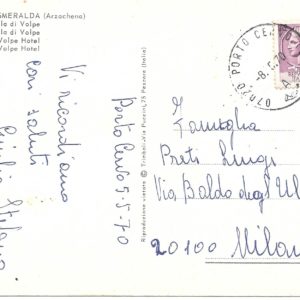 SMERALDA (Arzachena)
la di Volpe
la di Volpe
Volpe Hotel
Volpe Hotel
Vi ricordiamo
con saluti
Porto Cervo 5-5-70
Riproduzione vietata © Trimboli-Via
75 Pescara (Italia)
07020 PORTO CERVO
Famiglia
Prati Luigi
Via Baldo degli
20100 Milano